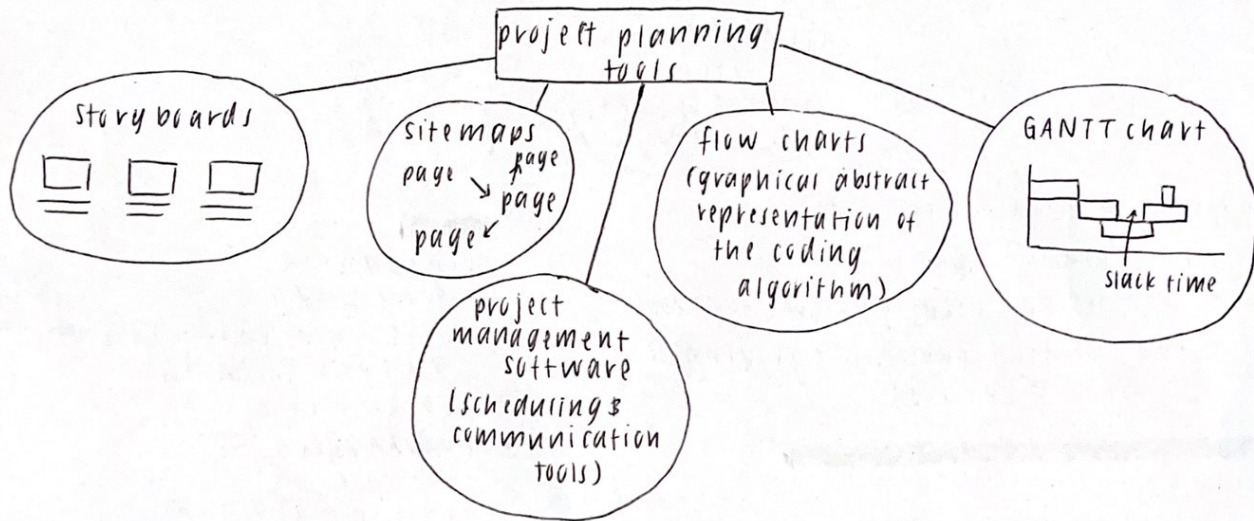 project planning
tools
storyboards
sitemaps
page
page
page
page
project
management
software
(scheduling &
communication
tools)
flow charts
(graphical abstract
representation of
the coding
algorithm)
GANTT chart
slack time